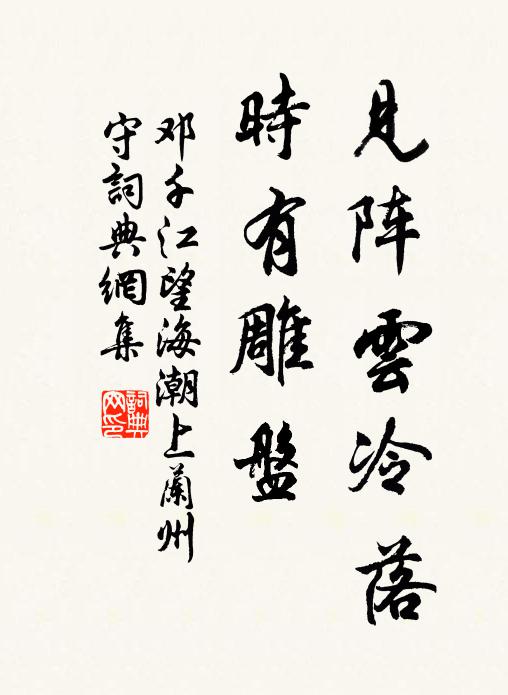 见阵雲冷落
時有雕盤
邓千江望海潮上蘭州
守詞典網集
詞典
网印